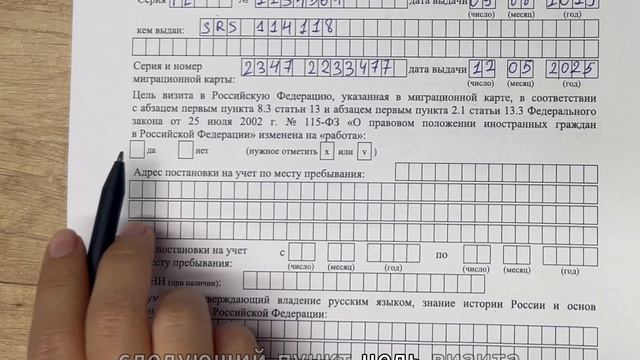 Серия № дата выдачи
(число) (месяц) (год)
кем выдан: SRS 114118
Серия и номер миграционной карты: 2347 2233477 дата выдачи 12 05 2025
(число) (месяц) (год)
Цель визита в Российскую Федерацию, указанная в миграционной карте, в соответствии
с абзацем первым пункта 8.3 статьи 13 и абзацем первым пункта 2.1 статьи 13.3 Федерального
закона от 25 июля 2002 г. № 115-ФЗ «О правовом положении иностранных граждан
в Российской Федерации» изменена на «работа»:
да нет (нужное отметить x или v )
Адрес постановки на учет по месту пребывания:
постановки на учет с по
месту пребывания: (число) (месяц) (год) (число) (месяц) (год)
(при наличии):
подтверждающий владение русским языком, знание истории России и основ
Российской Федерации:
следующий пункт цель визита